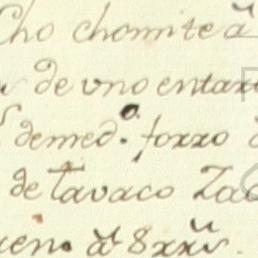 Cho chomite â
de vno entax
demed.º foxxo
de tavaco Za
en. â 8xxⁿ.